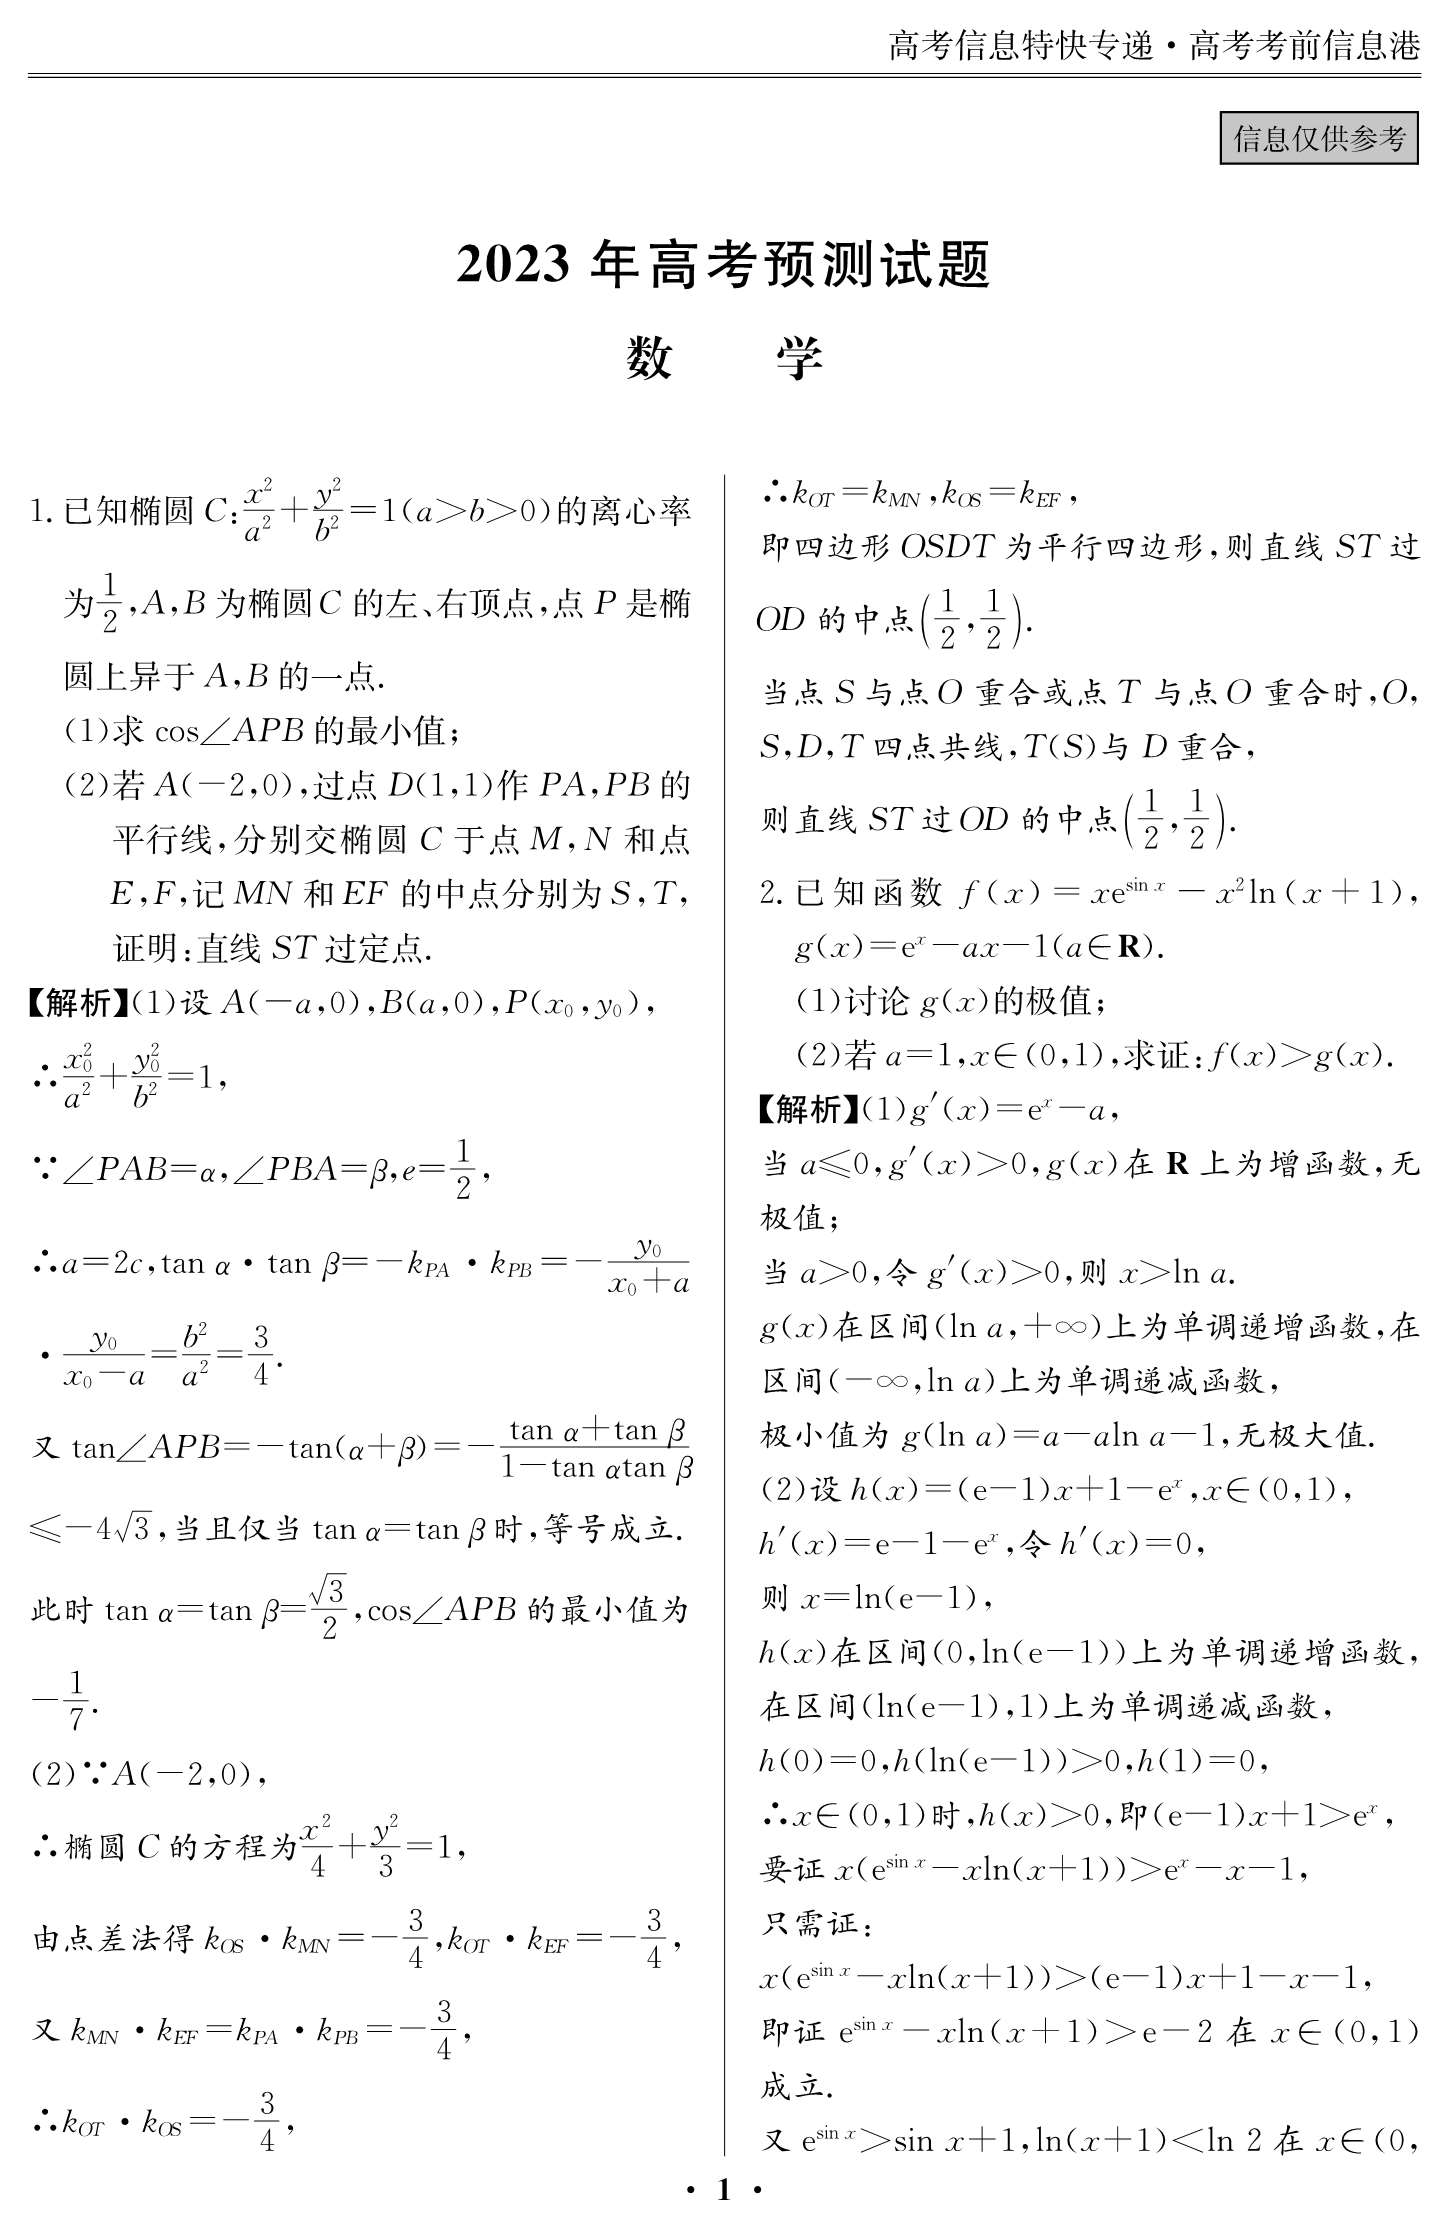 高考信息特快专递·高考考前信息港
信息仅供参考
2023 年高考预测试题
数 学
1. 已知椭圆 C:x²/a²+y²/b²=1(a>b>0)的离心率
为1/2,A,B 为椭圆C 的左、右顶点,点 P 是椭
圆上异于 A,B 的一点.
(1)求 cos∠APB 的最小值;
(2)若 A(-2,0),过点 D(1,1)作 PA,PB 的
平行线,分别交椭圆 C 于点 M,N 和点
E,F,记 MN 和 EF 的中点分别为 S,T,
证明:直线 ST 过定点.
【解析】(1)设 A(-a,0),B(a,0),P(x₀,y₀),
∴x₀²/a²+y₀²/b²=1,
∵∠PAB=α,∠PBA=β,e=1/2,
∴a=2c,tan α·tan β=-k_PA·k_PB=-y₀/(x₀+a)
·y₀/(x₀-a)=b²/a²=3/4.
又 tan∠APB=-tan(α+β)=-(tan α+tan β)/(1-tan αtan β)
≤-4√3,当且仅当 tan α=tan β时,等号成立.
此时 tan α=tan β=√3/2,cos∠APB 的最小值为
-1/7.
(2)∵A(-2,0),
∴椭圆 C 的方程为x²/4+y²/3=1,
由点差法得 k_OS·k_MN=-3/4,k_OT·k_EF=-3/4,
又 k_MN·k_EF=k_PA·k_PB=-3/4,
∴k_OT·k_OS=-3/4,
∴k_OT=k_MN,k_OS=k_EF,
即四边形 OSDT 为平行四边形,则直线 ST 过
OD 的中点(1/2,1/2).
当点 S 与点 O 重合或点 T 与点 O 重合时,O,
S,D,T 四点共线,T(S)与 D 重合,
则直线 ST 过 OD 的中点(1/2,1/2).
2. 已知函数 f(x)=xe^(sin x)-x²ln(x+1),
g(x)=eˣ-ax-1(a∈R).
(1)讨论 g(x)的极值;
(2)若 a=1,x∈(0,1),求证:f(x)>g(x).
【解析】(1)g′(x)=eˣ-a,
当 a≤0,g′(x)>0,g(x)在 R 上为增函数,无
极值;
当 a>0,令 g′(x)>0,则 x>ln a.
g(x)在区间(ln a,+∞)上为单调递增函数,在
区间(-∞,ln a)上为单调递减函数,
极小值为 g(ln a)=a-aln a-1,无极大值.
(2)设 h(x)=(e-1)x+1-eˣ,x∈(0,1),
h′(x)=e-1-eˣ,令 h′(x)=0,
则 x=ln(e-1),
h(x)在区间(0,ln(e-1))上为单调递增函数,
在区间(ln(e-1),1)上为单调递减函数,
h(0)=0,h(ln(e-1))>0,h(1)=0,
∴x∈(0,1)时,h(x)>0,即(e-1)x+1>eˣ,
要证 x(e^(sin x)-xln(x+1))>eˣ-x-1,
只需证:
x(e^(sin x)-xln(x+1))>(e-1)x+1-x-1,
即证 e^(sin x)-xln(x+1)>e-2 在 x∈(0,1)
成立.
又 e^(sin x)>sin x+1,ln(x+1)<ln 2 在 x∈(0,
· 1 ·